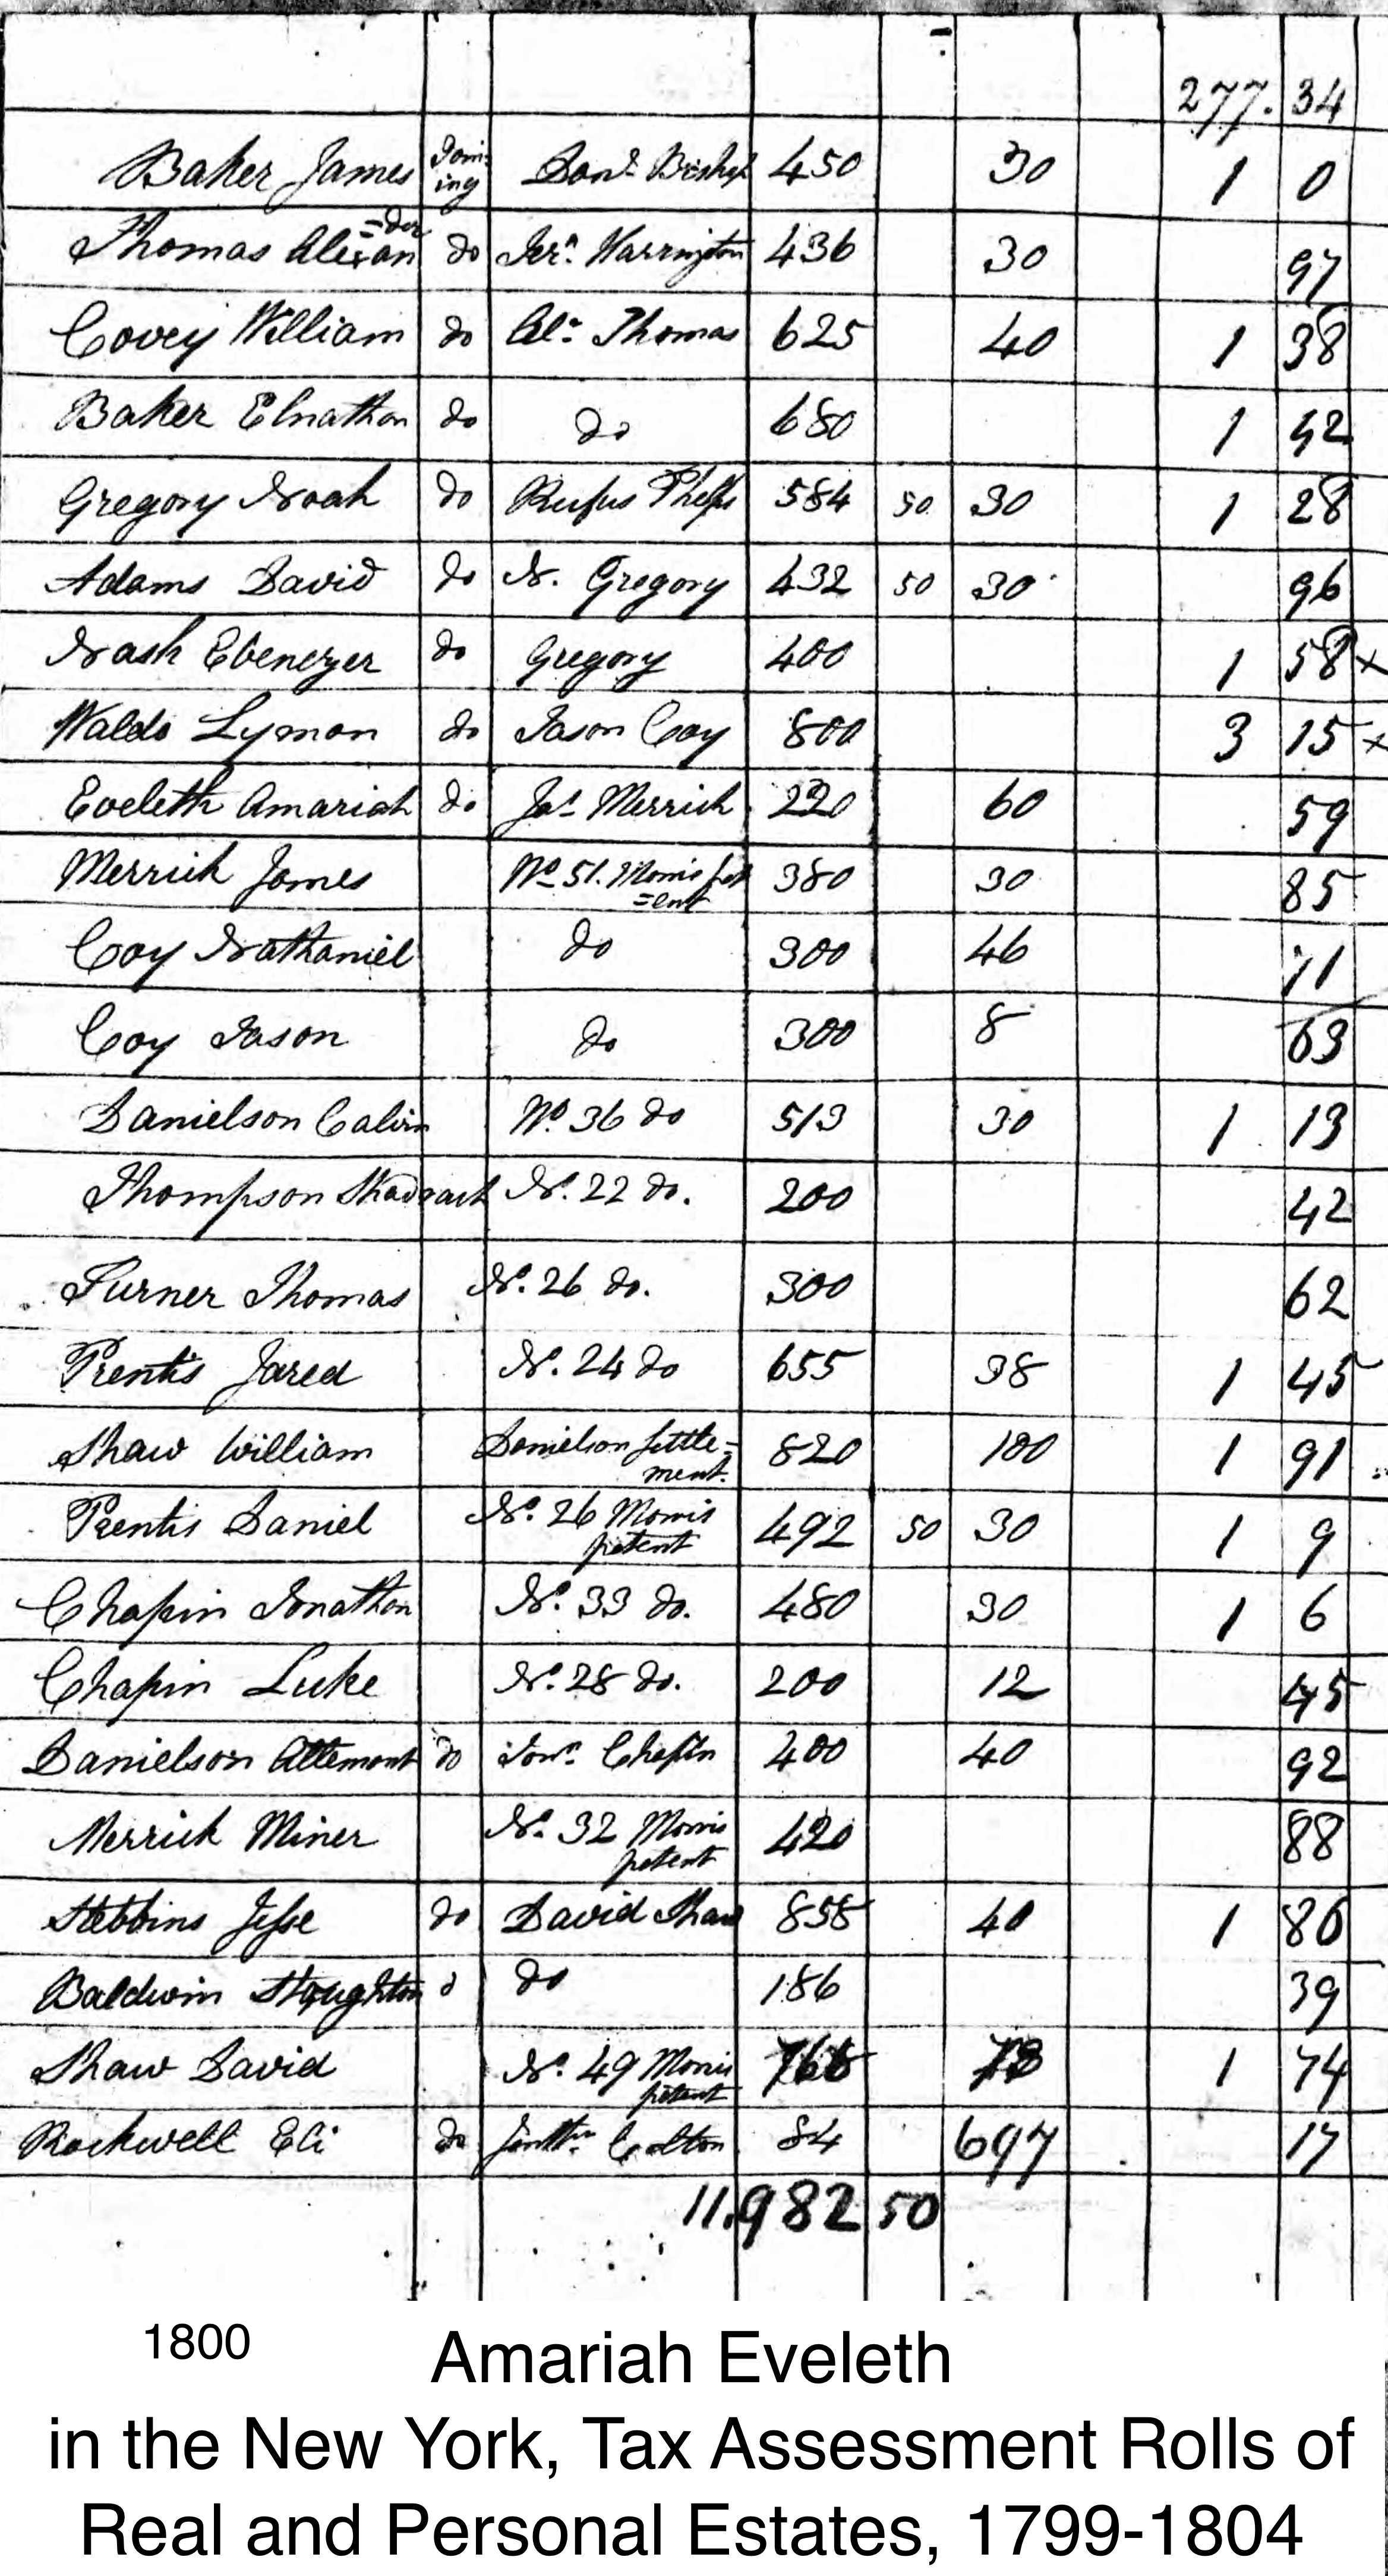 277. 34
Baker James Joining Danl. Bishop 450 30 1 0
Thomas Alexan=der do Jera. Warrington 436 30 97
Covey William do Alr. Thomas 625 40 1 38
Baker Elnathan do do 680 1 42
Gregory Noah do Rufus Phelps 584 50 30 1 28
Adams David do N. Gregory 432 50 30 96
Nash Ebenezer do Gregory 400 1 58 x
Waldo Lyman do Jason Coy 800 3 15 x
Eveleth Amariah do Jas. Merrick 220 60 59
Merrick James No 51. Morris pat=ent 380 30 85
Coy Nathaniel do 300 46 71
Coy Jason do 300 8 63
Danielson Calvin No. 36 do 513 30 1 13
Thompson Shadrach No. 22 do. 200 42
Turner Thomas No. 26 do. 300 62
Prentis Jared No. 24 do 655 38 1 45
Shaw William Danielson Settle=
ment. 820 100 1 91
Prentis Daniel No. 26 Morris
patent 492 50 30 1 9
Chapin Jonathan No. 33 do. 480 30 1 6
Chapin Luke No. 28 do. 200 12 45
Danielson Altemont do Jonn. Chapin 400 40 92
Merrick Miner No. 32 Morris
patent 420 88
Stebbins Jesse do David Shaw 858 40 1 86
Baldwin Stoughton d do 186 39
Shaw David No. 49 Morris
patent 766 73 1 74
Rockwell Eli do Jontn. Colton 84 697 17
11.982 50
1800 Amariah Eveleth
in the New York, Tax Assessment Rolls of
Real and Personal Estates, 1799-1804